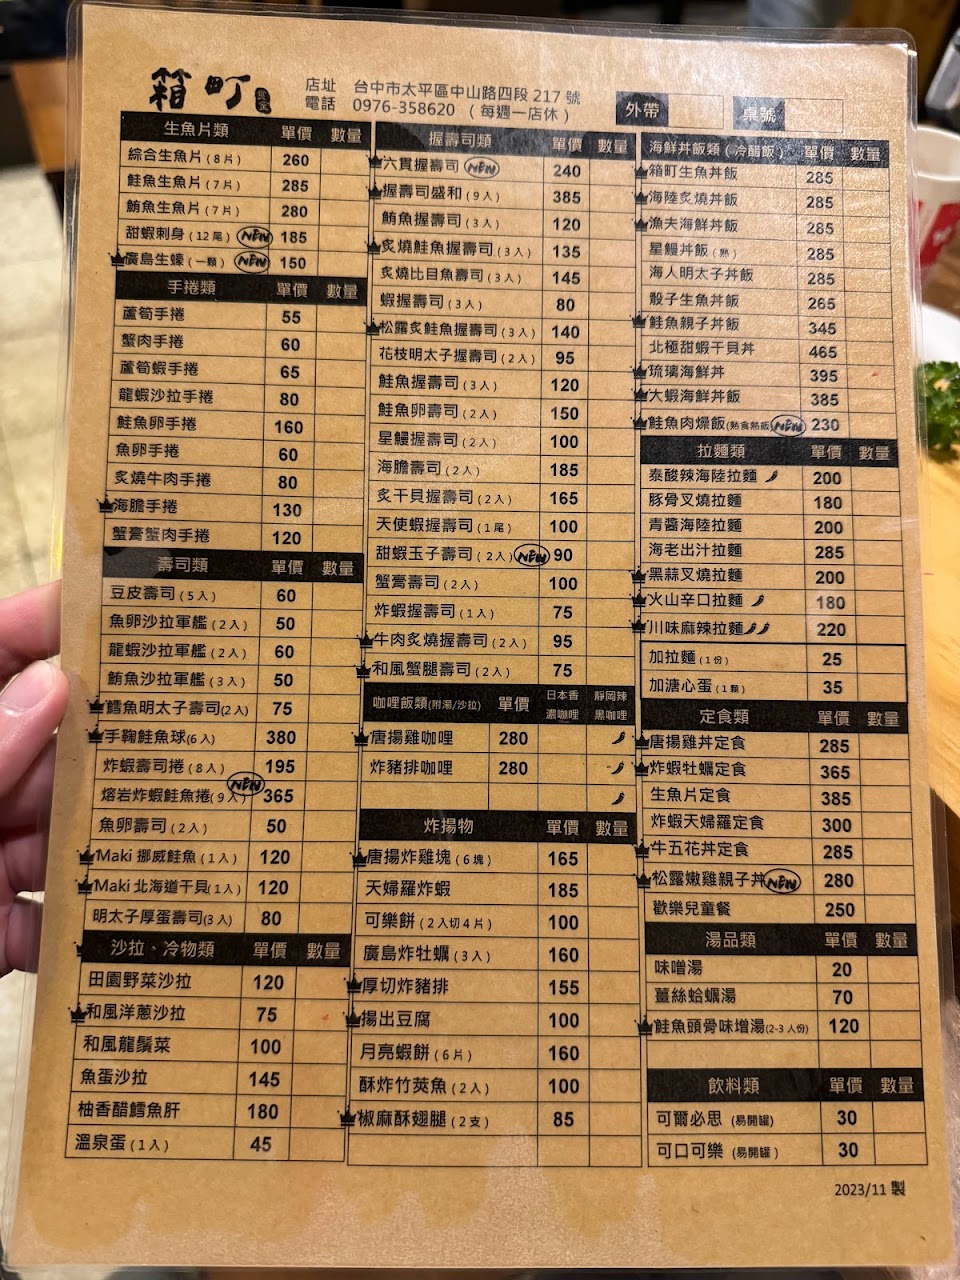 箱町 食堂
店址 台中市太平區中山路四段 217 號
電話 0976-358620 (每週一店休)
外帶
桌號
生魚片類 單價 數量
綜合生魚片(8片) 260
鮭魚生魚片(7片) 285
鮪魚生魚片(7片) 280
甜蝦刺身(12尾) NEW 185
廣島生蠔(一顆) NEW 150
手捲類 單價 數量
蘆筍手捲 55
蟹肉手捲 60
蘆筍蝦手捲 65
龍蝦沙拉手捲 80
鮭魚卵手捲 160
魚卵手捲 60
炙燒牛肉手捲 80
海膽手捲 130
蟹膏蟹肉手捲 120
壽司類 單價 數量
豆皮壽司(5入) 60
魚卵沙拉軍艦(2入) 50
龍蝦沙拉軍艦(2入) 60
鮪魚沙拉軍艦(3入) 50
鱈魚明太子壽司(2入) 75
手鞠鮭魚球(6入) 380
炸蝦壽司捲(8入) 195
熔岩炸蝦鮭魚捲(9入) NEW 365
魚卵壽司(2入) 50
Maki 挪威鮭魚(1入) 120
Maki 北海道干貝(1入) 120
明太子厚蛋壽司(3入) 80
沙拉、冷物類 單價 數量
田園野菜沙拉 120
和風洋蔥沙拉 75
和風龍鬚菜 100
魚蛋沙拉 145
柚香醋鱈魚肝 180
溫泉蛋(1入) 45
握壽司類 單價 數量
六貫握壽司 NEW 240
握壽司盛和(9入) 385
鮪魚握壽司(3入) 120
炙燒鮭魚握壽司(3入) 135
炙燒比目魚壽司(3入) 145
蝦握壽司(3入) 80
松露炙鮭魚握壽司(3入) 140
花枝明太子握壽司(2入) 95
鮭魚握壽司(3入) 120
鮭魚卵壽司(2入) 150
星鰻握壽司(2入) 100
海膽壽司(2入) 185
炙干貝握壽司(2入) 165
天使蝦握壽司(1尾) 100
甜蝦玉子壽司(2入) NEW 90
蟹膏壽司(2入) 100
炸蝦握壽司(1入) 75
牛肉炙燒握壽司(2入) 95
和風蟹腿壽司(2入) 75
咖哩飯類(附湯/沙拉) 單價 日本香濃咖哩 靜岡辣黑咖哩
唐揚雞咖哩 280
炸豬排咖哩 280
炸揚物 單價 數量
唐揚炸雞塊(6塊) 165
天婦羅炸蝦 185
可樂餅(2入切4片) 100
廣島炸牡蠣(3入) 160
厚切炸豬排 155
揚出豆腐 100
月亮蝦餅(6片) 160
酥炸竹莢魚(2入) 100
椒麻酥翅腿(2支) 85
海鮮丼飯類(冷醋飯) 單價 數量
箱町生魚丼飯 285
海陸炙燒丼飯 285
漁夫海鮮丼飯 285
星鰻丼飯(熟) 285
海人明太子丼飯 285
骰子生魚丼飯 265
鮭魚親子丼飯 345
北極甜蝦干貝丼 465
琉璃海鮮丼 395
大蝦海鮮丼飯 385
鮭魚肉燥飯(熟食熱飯) NEW 230
拉麵類 單價 數量
泰酸辣海陸拉麵 200
豚骨叉燒拉麵 180
青醬海陸拉麵 200
海老出汁拉麵 285
黑蒜叉燒拉麵 200
火山辛口拉麵 180
川味麻辣拉麵 220
加拉麵(1份) 25
加溏心蛋(1顆) 35
定食類 單價 數量
唐揚雞丼定食 285
炸蝦牡蠣定食 365
生魚片定食 385
炸蝦天婦羅定食 300
牛五花丼定食 285
松露嫩雞親子丼 NEW 280
歡樂兒童餐 250
湯品類 單價 數量
味噌湯 20
薑絲蛤蠣湯 70
鮭魚頭骨味增湯(2-3人份) 120
飲料類 單價 數量
可爾必思 (易開罐) 30
可口可樂 (易開罐) 30
2023/11 製